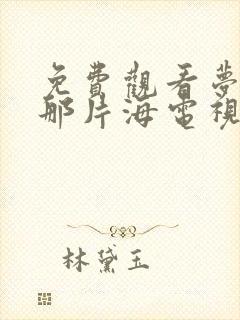 免費觀看夢
那片海電視
林黛玉